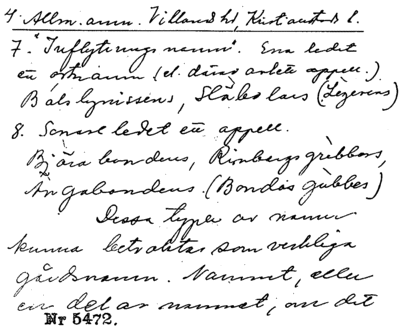 4. Allm. anm. Villands hd, Kristianstads l.
7. "Inflyttningsnamn". Ena ledet
en ortnamn (el. därav avlett appell.)
Balslynissens, Släbolars (Lezerens)
8. Senare ledet en appell.
Bjärabondens, Rimbergsgrebbors,
Ängabondens (Bondås gubbes)
Dessa typer av namn
kunna betraktas som verkliga
gårdsnamn. Namnet, eller
en del av namnet, om det
Nr 5472.